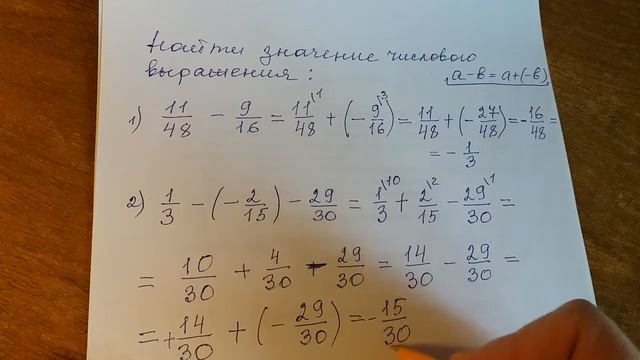 Найти значение числового
выражения:
a-b=a+(-b)
1) 11/48 - 9/16 = 11\1/48 + (-9\3/16) = 11/48 + (-27/48) = -16/48 =
= -1/3
2) 1/3 - (-2/15) - 29/30 = 1\10/3 + 2\2/15 - 29\1/30 =
= 10/30 + 4/30 - 29/30 = 14/30 - 29/30 =
= +14/30 + (-29/30) = -15/30